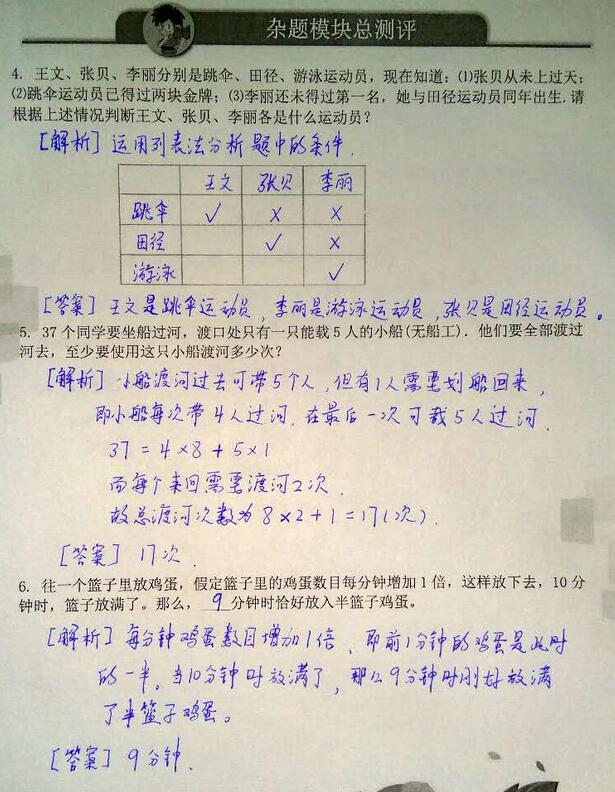 杂题模块总测评
4. 王文、张贝、李丽分别是跳伞、田径、游泳运动员，现在知道：(1)张贝从未上过天；
(2)跳伞运动员已得过两块金牌；(3)李丽还未得过第一名，她与田径运动员同年出生. 请
根据上述情况判断王文、张贝、李丽各是什么运动员？
[解析] 运用列表法分析题中的条件.
王文 张贝 李丽
跳伞 ✓ × ×
田径 ✓ ×
游泳 ✓
[答案] 王文是跳伞运动员，李丽是游泳运动员，张贝是田径运动员。
5. 37个同学要坐船过河，渡口处只有一只能载5人的小船(无船工). 他们要全部渡过
河去，至少要使用这只小船渡河多少次？
[解析] 小船渡河过去可带5个人，但有1人需要划船回来，
即小船每次带4人过河. 在最后一次可载5人过河.
37=4×8+5×1
而每个来回需要渡河2次.
故总渡河次数为8×2+1=17(次).
[答案] 17次.
6. 往一个篮子里放鸡蛋，假定篮子里的鸡蛋数目每分钟增加1倍，这样放下去，10分
钟时，篮子放满了。那么，9分钟时恰好放入半篮子鸡蛋。
[解析] 每分钟鸡蛋数目增加1倍，即前1分钟的鸡蛋是此时
的一半。当10分钟时放满了，那么9分钟时刚好放满
了半篮子鸡蛋。
[答案] 9分钟.